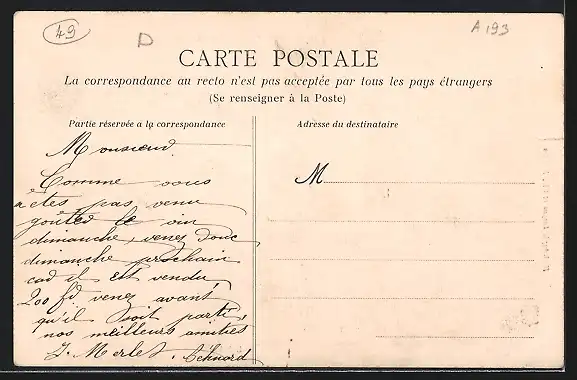 49
D
A 193
CARTE POSTALE
La correspondance au recto n'est pas acceptée par tous les pays étrangers
(Se renseigner à la Poste)
Partie réservée a la correspondance
Adresse du destinataire
M
Monsieur
Comme vous
étes pas venu
goûter le vin
dimanche, venez donc
dimanche prochain
car il est vendu
200 fr venez avant
qu'il soit parti,
nos meilleurs amitiés
J. Merlet.